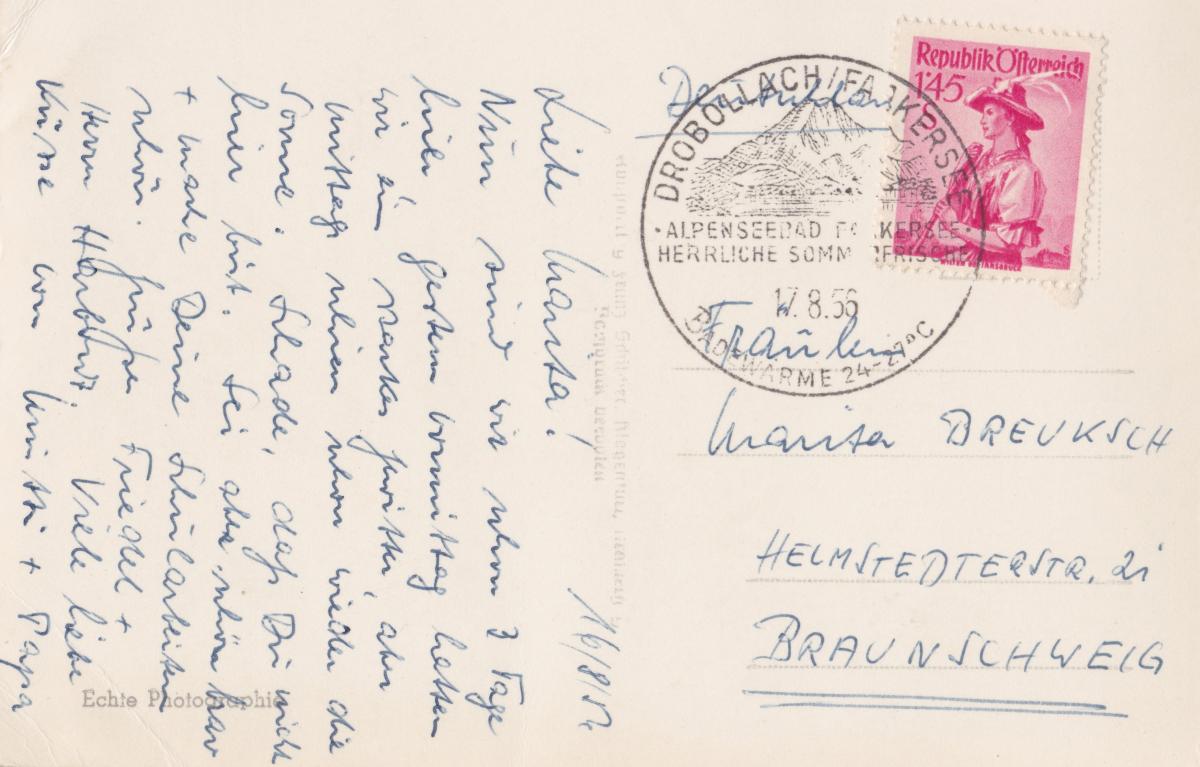 16/8/52
Liebe Marita!
Nun sind wir schon 3 Tage
hier, gestern vormittag hatten
wir ein starkes Gewitter aber
mittags schien schon wieder die
Sonne. Schade, daß Du nicht
hier bist. Sei aber schön brav
+ mache Deine Schularbeiten
schön. Grüße Friedel +
Herrn Harbort, Viele liebe
Küsse von Mutti + Papa
Echte Photographie
Republik Österreich
1'45
DROBOLLACH/FAAKERSEE
·ALPENSEEBAD FAAKERSEE·
HERRLICHE SOMMERFRISCHE
17.8.56
BADEWÄRME 24-27°C
Fräulein
Marita BREUKSCH
HELMSTEDTERSTR. 21
BRAUNSCHWEIG